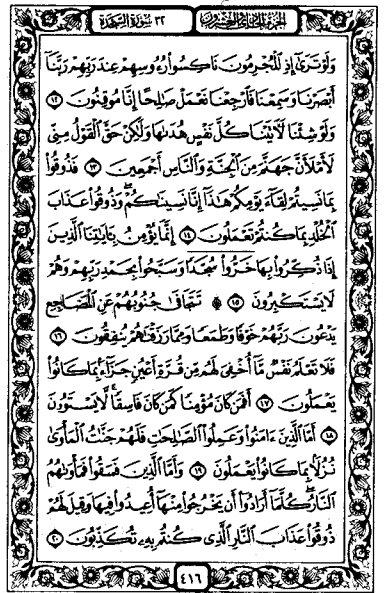 الجزء الحادي والعشرون ٣٢ سورة السجدة
وَلَوْ تَرَىٰٓ إِذِ ٱلْمُجْرِمُونَ نَاكِسُوا۟ رُءُوسِهِمْ عِندَ رَبِّهِمْ رَبَّنَآ
أَبْصَرْنَا وَسَمِعْنَا فَٱرْجِعْنَا نَعْمَلْ صَـٰلِحًا إِنَّا مُوقِنُونَ ١٢
وَلَوْ شِئْنَا لَـَٔاتَيْنَا كُلَّ نَفْسٍ هُدَىٰهَا وَلَـٰكِنْ حَقَّ ٱلْقَوْلُ مِنِّى
لَأَمْلَأَنَّ جَهَنَّمَ مِنَ ٱلْجِنَّةِ وَٱلنَّاسِ أَجْمَعِينَ ١٣ فَذُوقُوا۟
بِمَا نَسِيتُمْ لِقَآءَ يَوْمِكُمْ هَـٰذَآ إِنَّا نَسِينَـٰكُمْ ۖ وَذُوقُوا۟ عَذَابَ
ٱلْخُلْدِ بِمَا كُنتُمْ تَعْمَلُونَ ١٤ إِنَّمَا يُؤْمِنُ بِـَٔايَـٰتِنَا ٱلَّذِينَ
إِذَا ذُكِّرُوا۟ بِهَا خَرُّوا۟ سُجَّدًا وَسَبَّحُوا۟ بِحَمْدِ رَبِّهِمْ وَهُمْ
لَا يَسْتَكْبِرُونَ ۩ ١٥ تَتَجَافَىٰ جُنُوبُهُمْ عَنِ ٱلْمَضَاجِعِ
يَدْعُونَ رَبَّهُمْ خَوْفًا وَطَمَعًا وَمِمَّا رَزَقْنَـٰهُمْ يُنفِقُونَ ١٦
فَلَا تَعْلَمُ نَفْسٌ مَّآ أُخْفِىَ لَهُم مِّن قُرَّةِ أَعْيُنٍ جَزَآءًۢ بِمَا كَانُوا۟
يَعْمَلُونَ ١٧ أَفَمَن كَانَ مُؤْمِنًا كَمَن كَانَ فَاسِقًا ۚ لَّا يَسْتَوُۥنَ
١٨ أَمَّا ٱلَّذِينَ ءَامَنُوا۟ وَعَمِلُوا۟ ٱلصَّـٰلِحَـٰتِ فَلَهُمْ جَنَّـٰتُ ٱلْمَأْوَىٰ
نُزُلًۢا بِمَا كَانُوا۟ يَعْمَلُونَ ١٩ وَأَمَّا ٱلَّذِينَ فَسَقُوا۟ فَمَأْوَىٰهُمُ
ٱلنَّارُ ۖ كُلَّمَآ أَرَادُوٓا۟ أَن يَخْرُجُوا۟ مِنْهَآ أُعِيدُوا۟ فِيهَا وَقِيلَ لَهُمْ
ذُوقُوا۟ عَذَابَ ٱلنَّارِ ٱلَّذِى كُنتُم بِهِۦ تُكَذِّبُونَ ٢٠
٤١٦